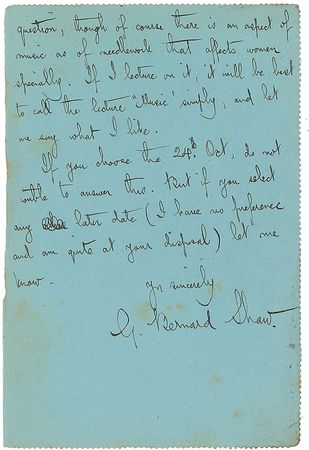 question, though of course there is an aspect of
music as of needlework that affects women
specially. If I lecture on it, it will be best
to call the lecture "Music" simply, and let
me say what I like.
If you choose the 24th Oct, do not
trouble to answer this. But if you select
any later date (I have no preference
and am quite at your disposal) let me
know.
yrs sincerely
G. Bernard Shaw.